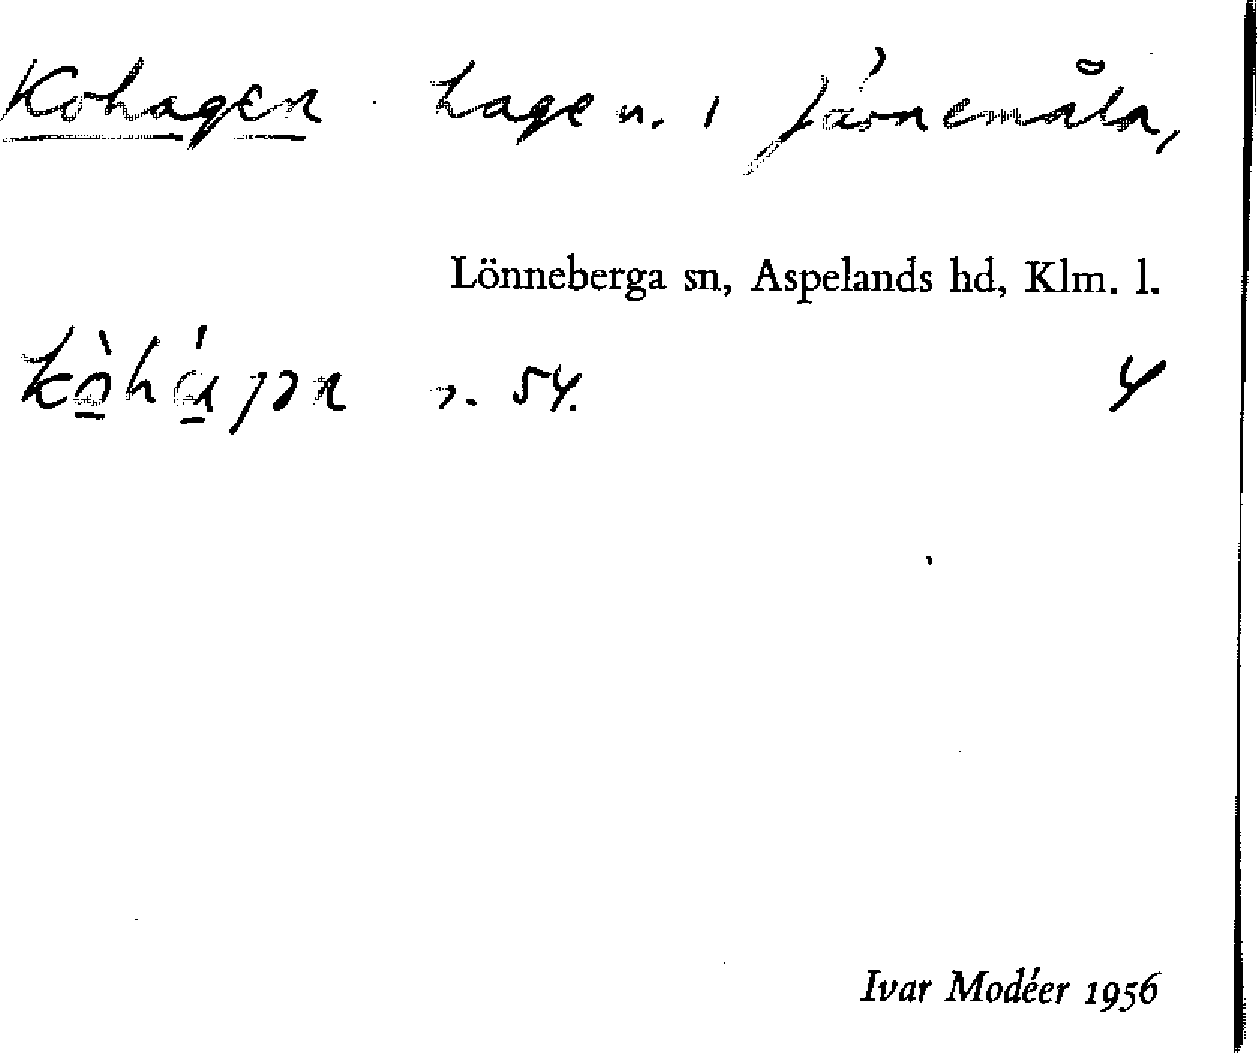 Kohagen hage n. i Järnemåla,
Lönneberga sn, Aspelands hd, Klm. l.
n. 54. 4
Ivar Modéer 1956